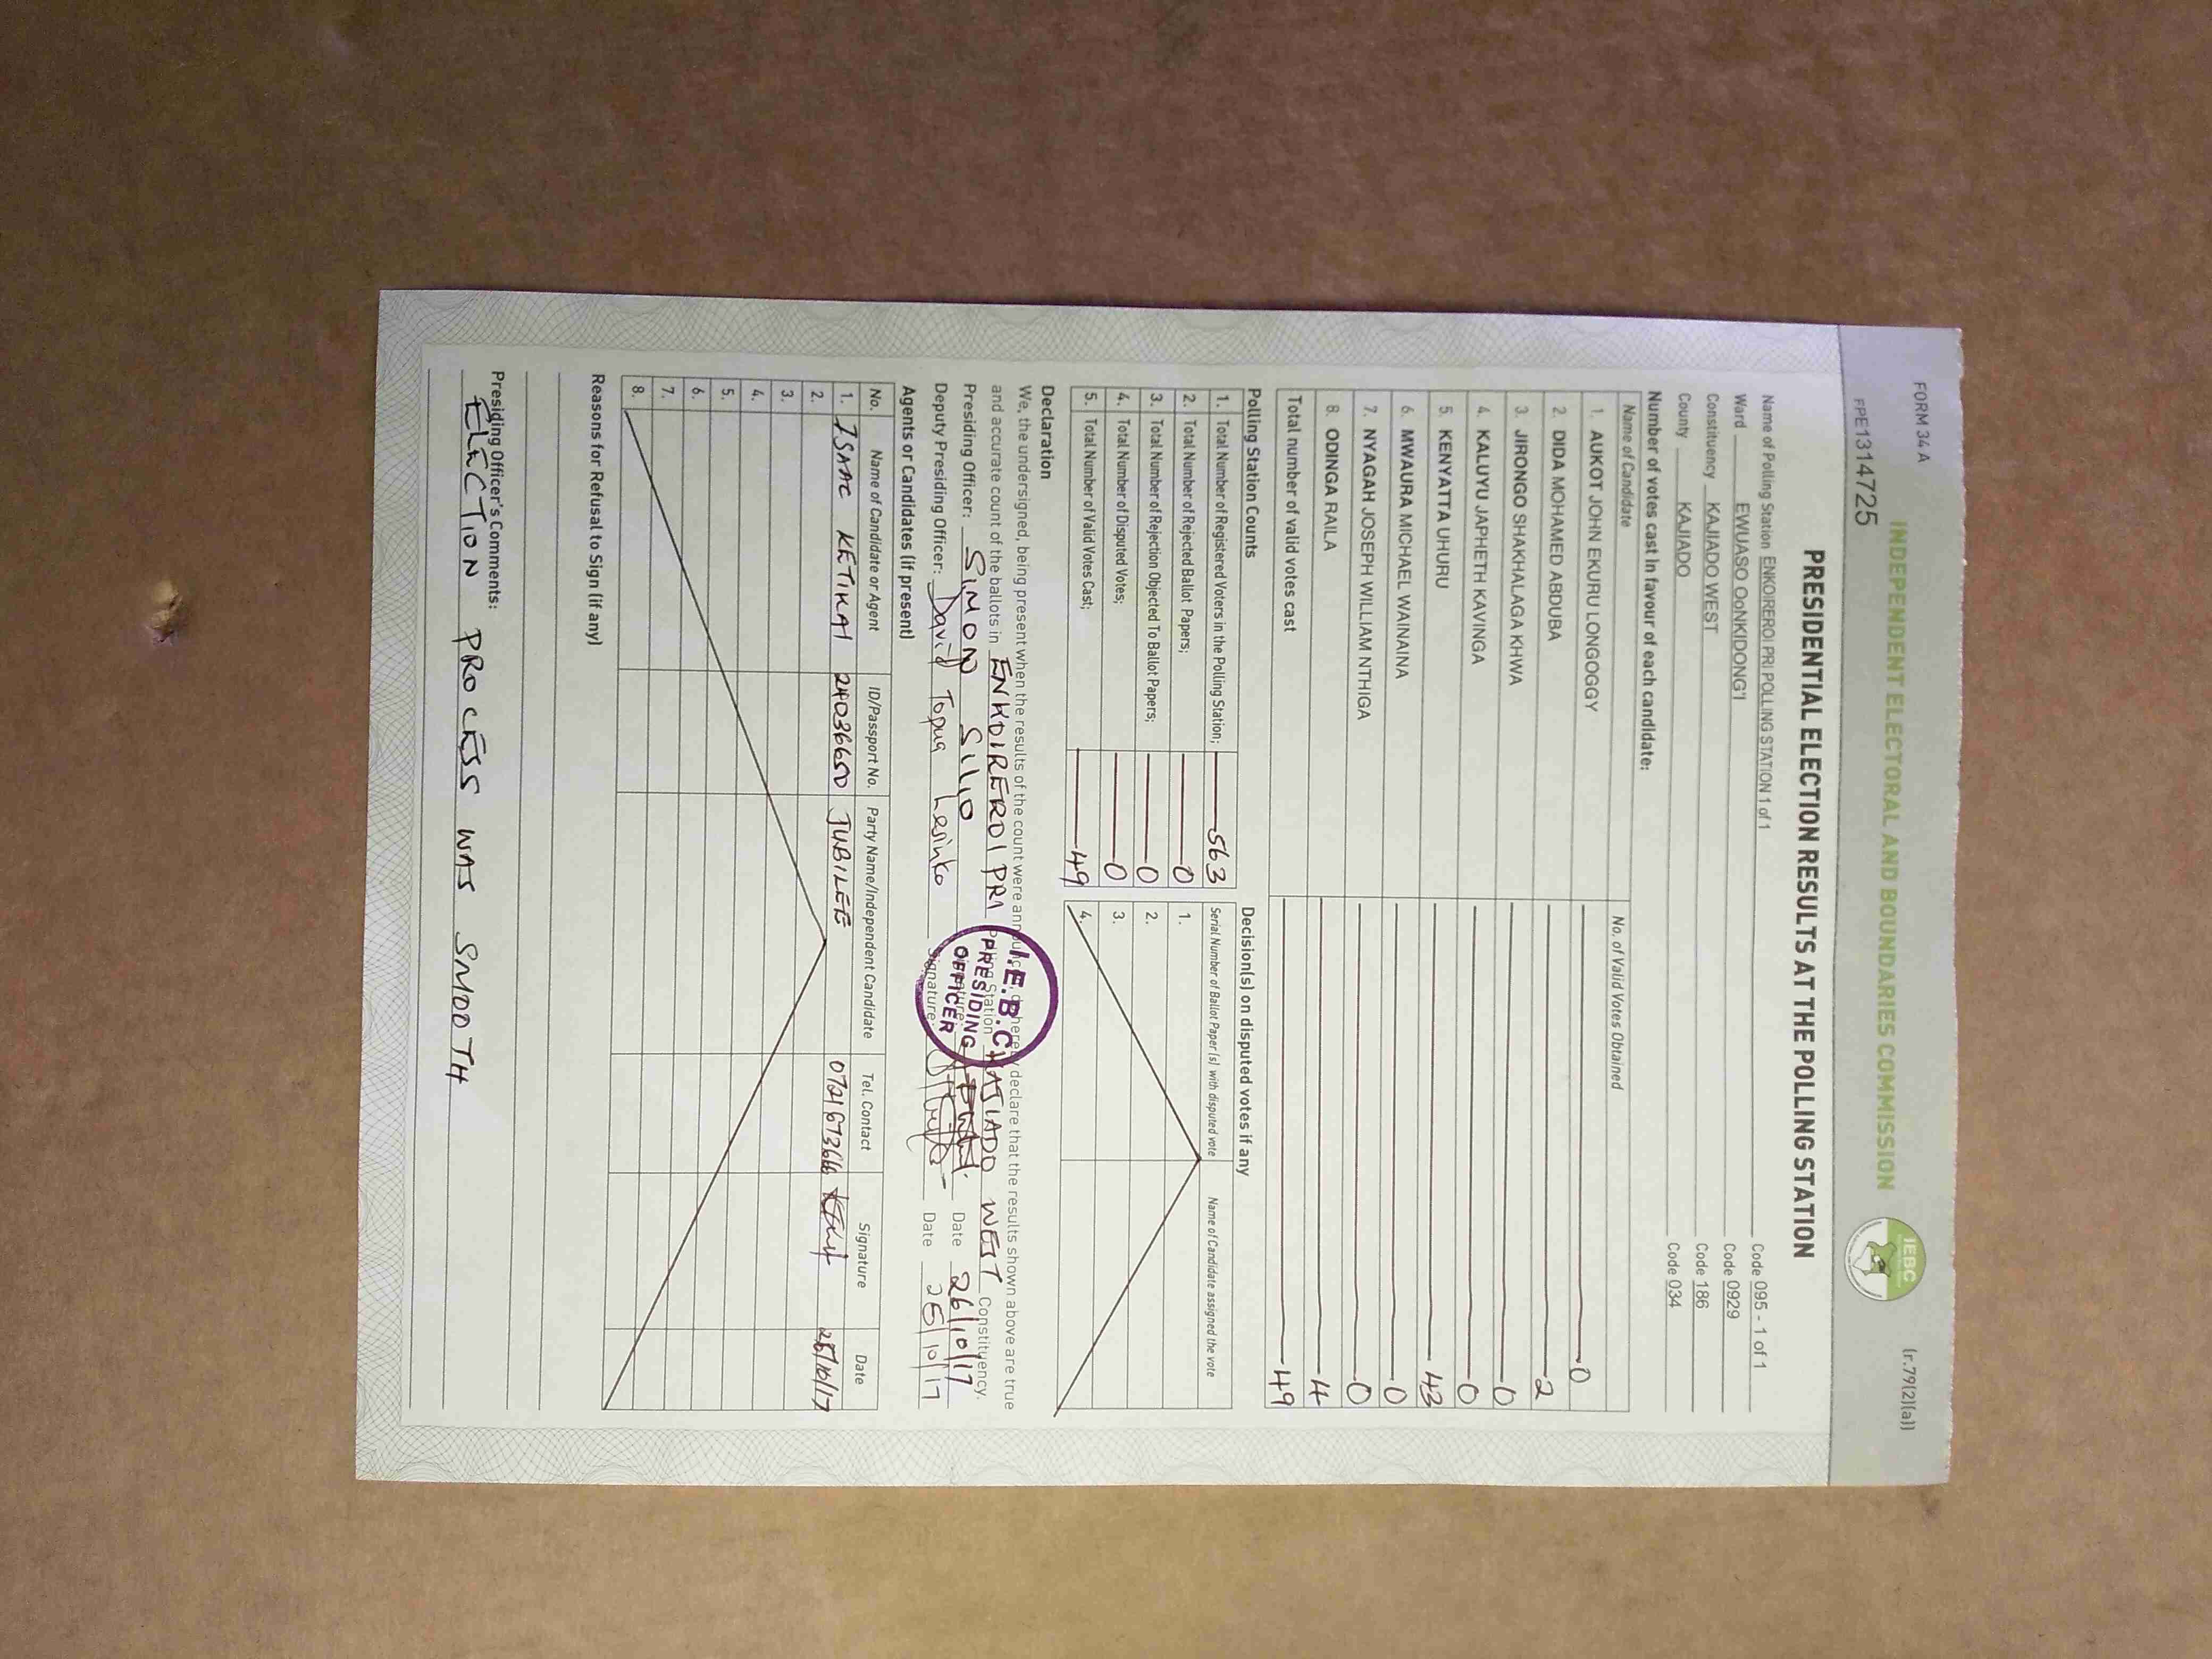 FORM 34 A
(r.79(2)(a))
INDEPENDENT ELECTORAL AND BOUNDARIES COMMISSION
IEBC
FPE1314725
PRESIDENTIAL ELECTION RESULTS AT THE POLLING STATION
Name of Polling Station ENKOIREROI PRI POLLING STATION 1 of 1 Code 095 - 1 of 1
Ward EWUASO OoNKIDONG'I Code 0929
Constituency KAJIADO WEST Code 186
County KAJIADO Code 034
Number of votes cast in favour of each candidate:
Name of Candidate No. of Valid Votes Obtained
1. AUKOT JOHN EKURU LONGOGGY 0
2. DIDA MOHAMED ABDUBA 2
3. JIRONGO SHAKHALAGA KHWA 0
4. KALUYU JAPHETH KAVINGA 0
5. KENYATTA UHURU 43
6. MWAURA MICHAEL WAINAINA 0
7. NYAGAH JOSEPH WILLIAM NTHIGA 0
8. ODINGA RAILA 4
Total number of valid votes cast 49
Polling Station Counts
1. Total Number of Registered Voters in the Polling Station; 563
2. Total Number of Rejected Ballot Papers; 0
3. Total Number of Rejection Objected To Ballot Papers; 0
4. Total Number of Disputed Votes; 0
5. Total Number of Valid Votes Cast; 49
Decision(s) on disputed votes if any
Serial Number of Ballot Paper (s) with disputed vote Name of Candidate assigned the vote
1.
2.
3.
4.
Declaration
We, the undersigned, being present when the results of the count were announced, do hereby declare that the results shown above are true
and accurate count of the ballots in ENKOIREROI PRI Polling Station KAJIADO WEST Constituency.
Presiding Officer: SIMON SILLO Signature: Date 26/10/17
Deputy Presiding Officer: David Topua Lesinko Signature: Date 26/10/17
I.E.B.C
PRESIDING
OFFICER
Agents or Candidates (if present)
No. Name of Candidate or Agent ID/Passport No. Party Name/Independent Candidate Tel. Contact Signature Date
1. ISAAC KETIKAI 24036650 JUBILEE 26/10/17
2.
3.
4.
5.
6.
7.
8.
Reasons for Refusal to Sign (if any)
Presiding Officer's Comments:
ELECTION PROCESS WAS SMOOTH